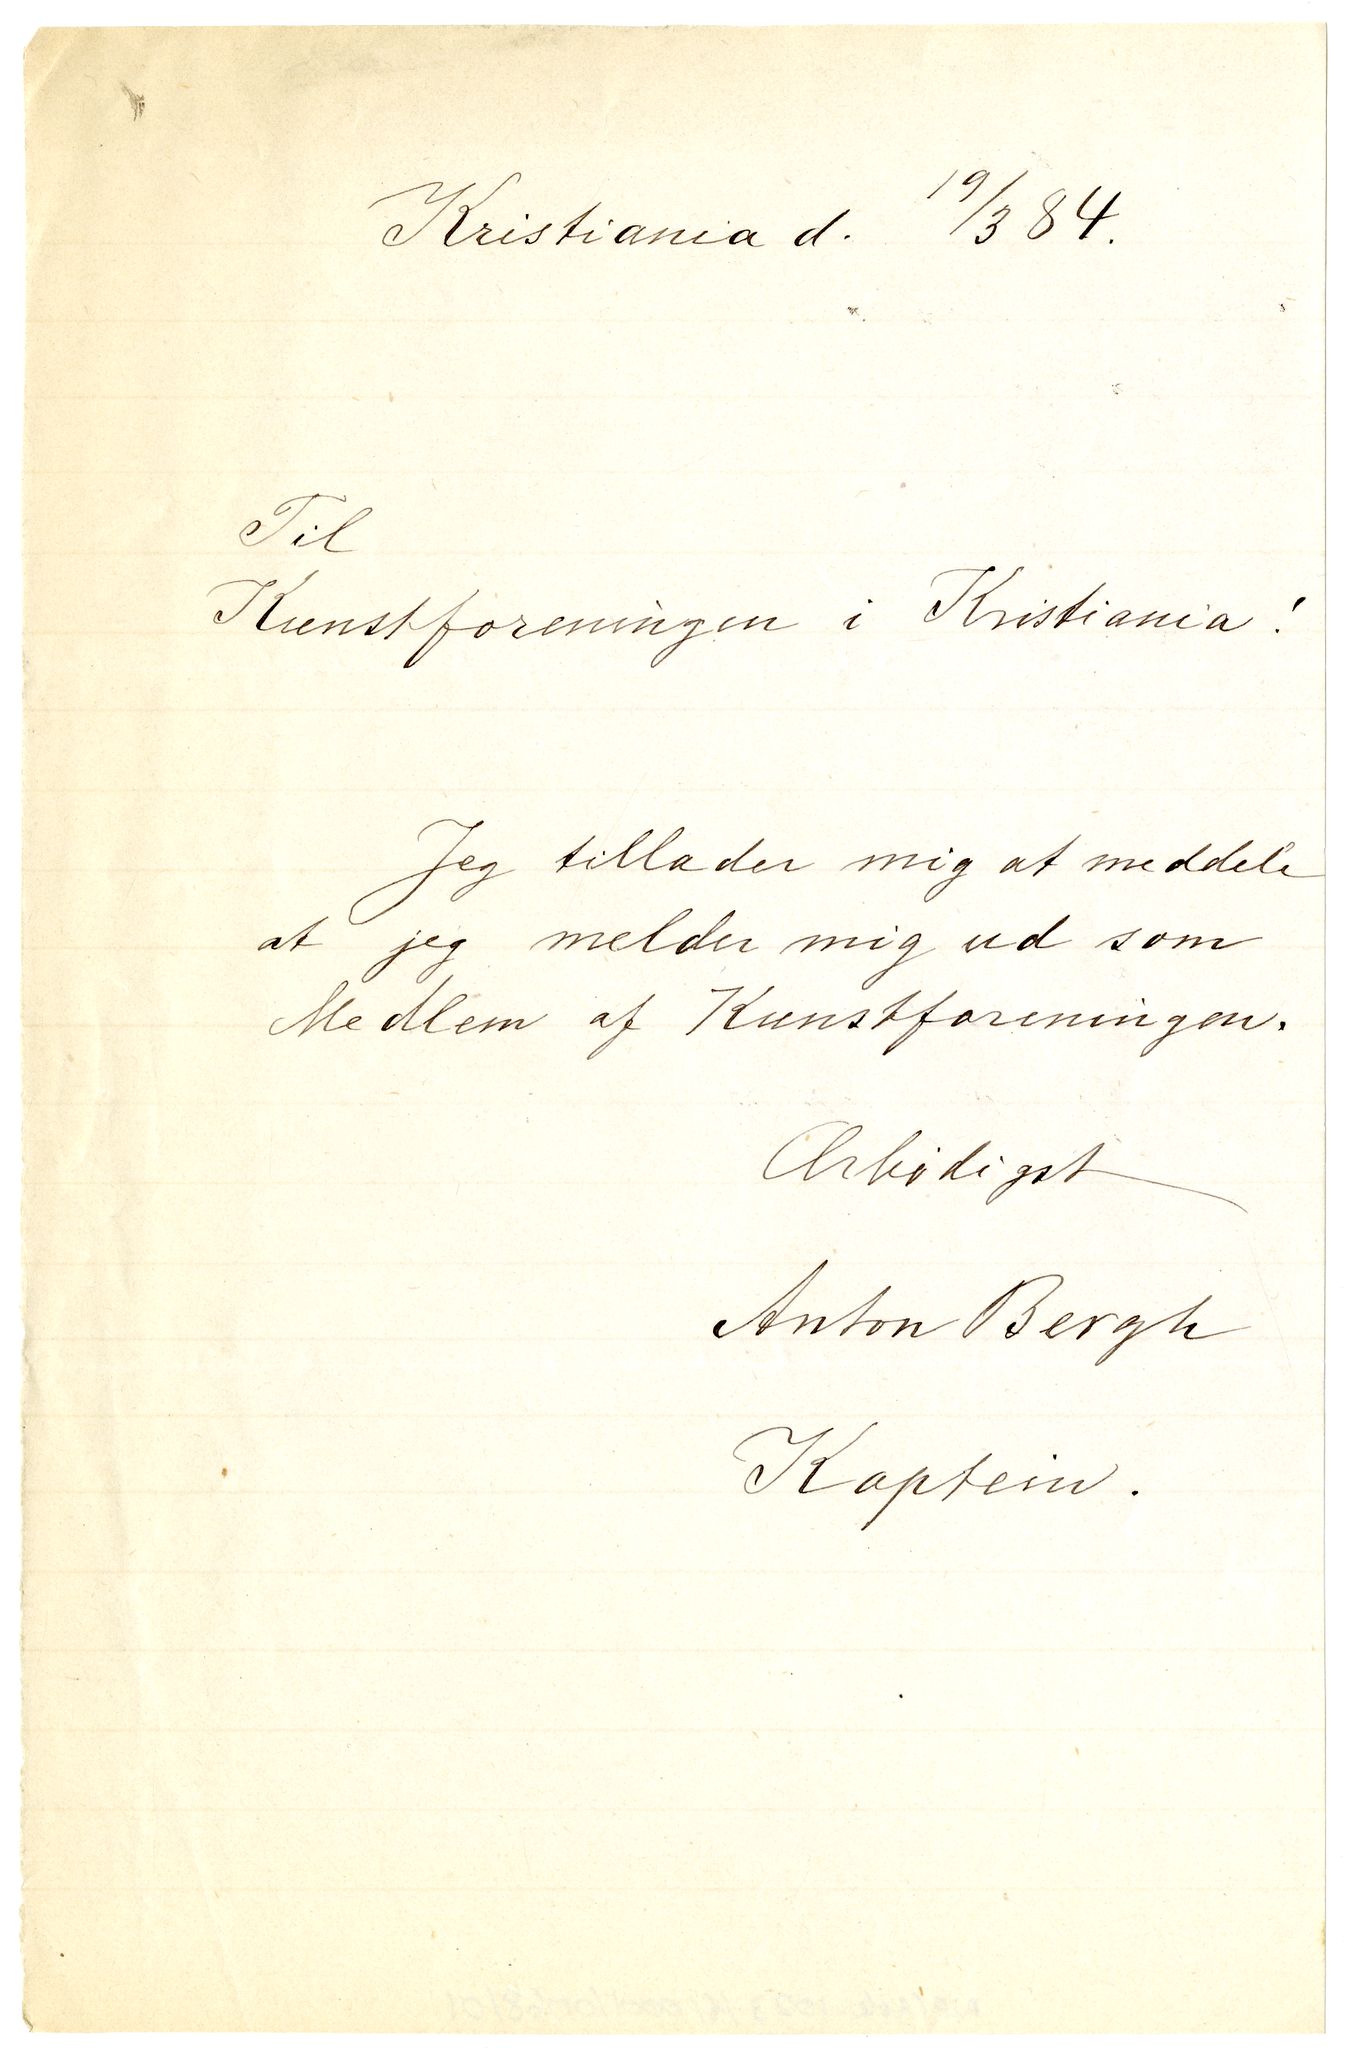 Kristiania d. 19/3 84.
Til
Kunstforeningen i Kristiania!
Jeg tillader mig at meddele
at jeg melder mig ud som
Medlem af Kunstforeningen.
Ærbødigst
Anton Bergh
Kaptein.